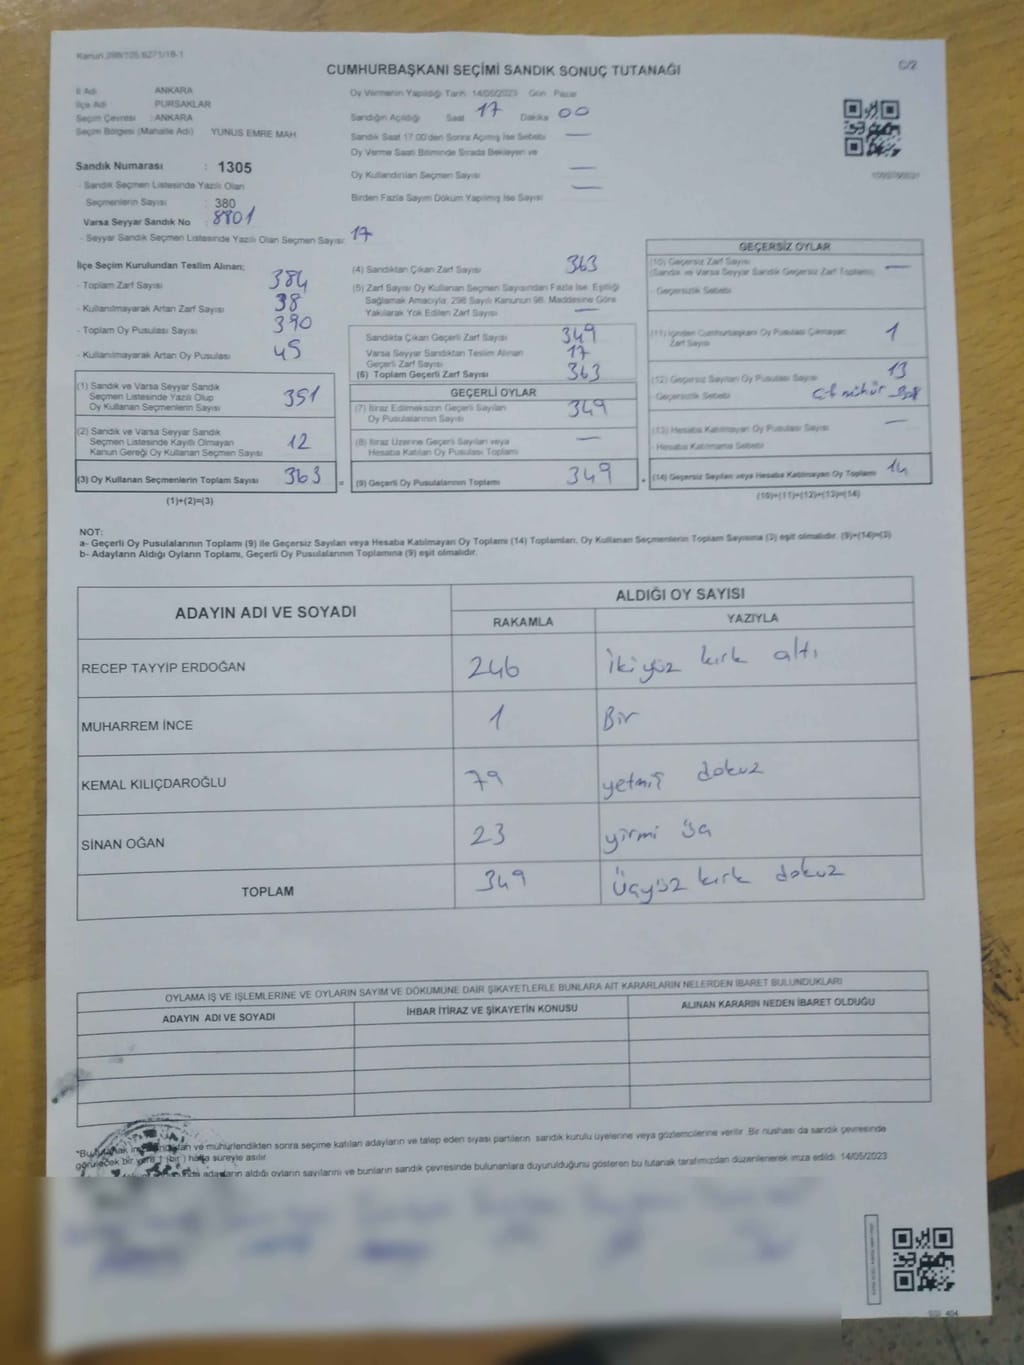 Kanun 298/105 6271/18-1
CUMHURBAŞKANI SEÇİMİ SANDIK SONUÇ TUTANAĞI
C/2
İl Adı ANKARA
İlçe Adı PURSAKLAR
Seçim Çevresi : ANKARA
Seçim Bölgesi (Mahalle Adı) YUNUS EMRE MAH.
Sandık Numarası : 1305
- Sandık Seçmen Listesinde Yazılı Olan
Seçmenlerin Sayısı : 380
Varsa Seyyar Sandık No : 8801
- Seyyar Sandık Seçmen Listesinde Yazılı Olan Seçmen Sayısı: 17
Oy Vermenin Yapıldığı Tarih 14/05/2023 Gün Pazar
Sandığın Açıldığı Saat 17 Dakika 00
Sandık Saat 17.00'den Sonra Açılmış İse Sebebi —
Oy Verme Saati Bitiminde Sırada Bekleyen ve
Oy Kullandırılan Seçmen Sayısı —
Birden Fazla Sayım Döküm Yapılmış İse Sayısı —
İlçe Seçim Kurulundan Teslim Alınan;
- Toplam Zarf Sayısı 384
- Kullanılmayarak Artan Zarf Sayısı 38
- Toplam Oy Pusulası Sayısı 390
- Kullanılmayarak Artan Oy Pusulası 45
(1) Sandık ve Varsa Seyyar Sandık
Seçmen Listesinde Yazılı Olup
Oy Kullanan Seçmenlerin Sayısı 351
(2) Sandık ve Varsa Seyyar Sandık
Seçmen Listesinde Kayıtlı Olmayan
Kanun Gereği Oy Kullanan Seçmen Sayısı 12
(3) Oy Kullanan Seçmenlerin Toplam Sayısı 363 =
(1)+(2)=(3)
(4) Sandıktan Çıkan Zarf Sayısı 363
(5) Zarf Sayısı Oy Kullanan Seçmen Sayısından Fazla İse, Eşitliği
Sağlamak Amacıyla, 298 Sayılı Kanunun 98. Maddesine Göre
Yakılarak Yok Edilen Zarf Sayısı —
Sandıkta Çıkan Geçerli Zarf Sayısı 349
Varsa Seyyar Sandıktan Teslim Alınan
Geçerli Zarf Sayısı 17
(6) Toplam Geçerli Zarf Sayısı 363
GEÇERLİ OYLAR
(7) İtiraz Edilmeksizin Geçerli Sayılan
Oy Pusulasının Sayısı 349
(8) İtiraz Üzerine Geçerli Sayılan veya
Hesaba Katılan Oy Pusulası Toplamı —
(9) Geçerli Oy Pusulalarının Toplamı 349 +
GEÇERSİZ OYLAR
(10) Geçersiz Zarf Sayısı —
(Sandık ve Varsa Seyyar Sandık Geçersiz Zarf Toplamı)
- Geçersizlik Sebebi
(11) İçinden Cumhurbaşkanı Oy Pusulası Çıkmayan 1
Zarf Sayısı
(12) Geçersiz Sayılan Oy Pusulası Sayısı 13
- Geçersizlik Sebebi Çift mühür
(13) Hesaba Katılmayan Oy Pusulası Sayısı —
- Hesaba Katılmama Sebebi
(14) Geçersiz Sayılan veya Hesaba Katılmayan Oy Toplamı 14
(10)+(11)+(12)+(13)=(14)
NOT:
a- Geçerli Oy Pusulalarının Toplamı (9) ile Geçersiz Sayılan veya Hesaba Katılmayan Oy Toplamı (14) Toplamları, Oy Kullanan Seçmenlerin Toplam Sayısına (3) eşit olmalıdır. (9)+(14)=(3)
b- Adayların Aldığı Oyların Toplamı, Geçerli Oy Pusulalarının Toplamına (9) eşit olmalıdır.
ADAYIN ADI VE SOYADI
ALDIĞI OY SAYISI
RAKAMLA YAZIYLA
RECEP TAYYİP ERDOĞAN 246 iki yüz kırk altı
MUHARREM İNCE 1 Bir
KEMAL KILIÇDAROĞLU 79 yetmiş dokuz
SİNAN OĞAN 23 yirmi üç
TOPLAM 349 Üçyüz kırk dokuz
OYLAMA İŞ VE İŞLEMLERİNE VE OYLARIN SAYIM VE DÖKÜMÜNE DAİR ŞİKAYETLERLE BUNLARA AİT KARARLARIN NELERDEN İBARET BULUNDUKLARI
ADAYIN ADI VE SOYADI İHBAR İTİRAZ VE ŞİKAYETİN KONUSU ALINAN KARARIN NEDEN İBARET OLDUĞU
ve mühürlendikten sonra seçime katılan adayların ve talep eden siyasi partilerin sandık kurulu üyelerine veya gözlemcilerine verilir. Bir nüshası da sandık çevresinde
görülecek bir yere 1 (bir) hafta süreyle asılır.
adayların aldığı oyların sayılarını ve bunların sandık çevresinde bulunanlara duyurulduğunu gösteren bu tutanak tarafımızdan düzenlenerek imza edildi. 14/05/2023